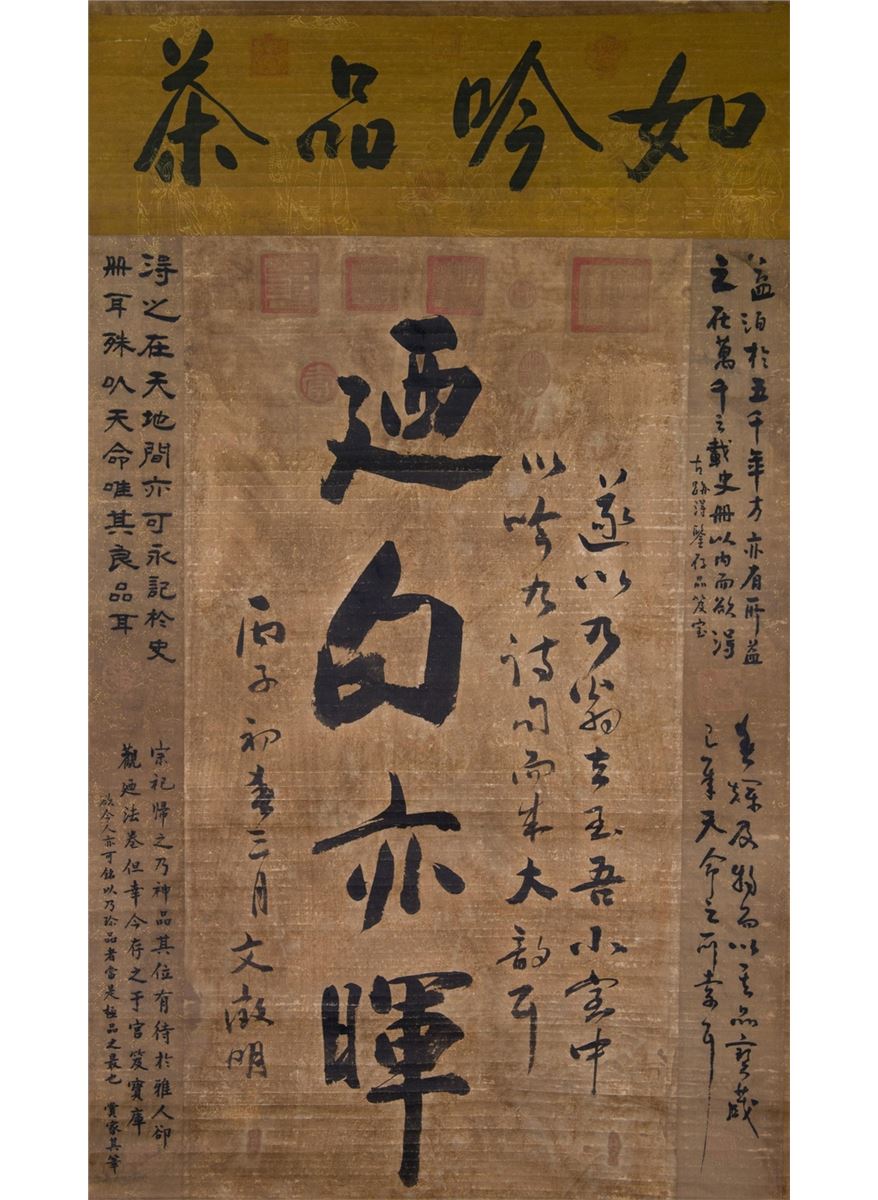 如吟品茶
益泊於五千年方亦有所益
之在萬千之載史冊以內而欲得
存品笈宝
春輝及物而以其品寶藏
天命之所
遂以九翁去玉吾小室中
以吟九詩句而成大韵耳
廼白亦暉
丙子初春三月文徵明
得之在天地間亦可永記於史
冊耳殊以天命唯其良品耳
宗祀歸之乃神品其位有待於雅人卻
觀廼法卷但幸今存之于宫笈寶庫
欲今人亦可銘以乃珍品者當是極品之最也 賞家其筆